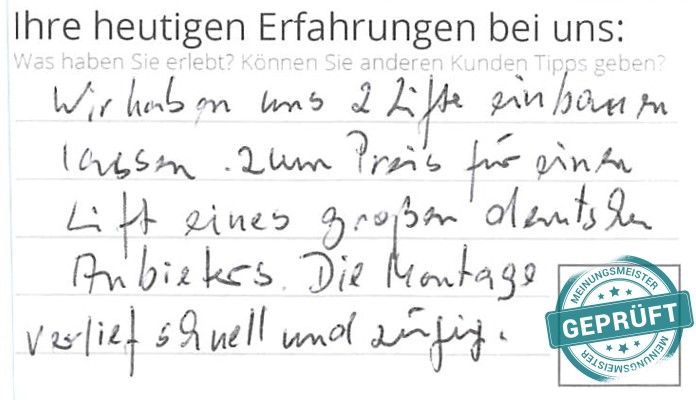 Ihre heutigen Erfahrungen bei uns:
Was haben Sie erlebt? Können Sie anderen Kunden Tipps geben?
Wir haben uns 2 Lifte einbauen
lassen. Zum Preis für einen
Lift eines großen deutschen
Anbieters. Die Montage
verlief schnell und zügig.
MEINUNGSMEISTER
GEPRÜFT
MEINUNGSMEISTER